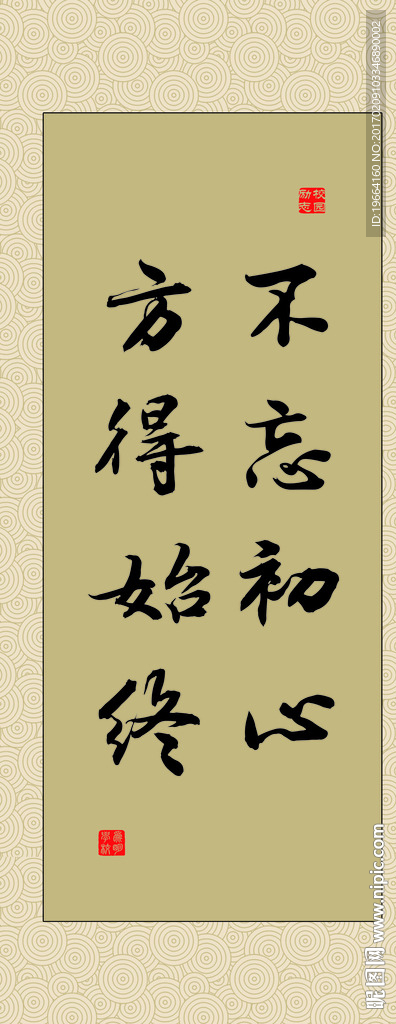 不忘初心
方得始终
校园
励志
ID:19664160 NO:20170209103346890002
昵图网 www.nipic.com